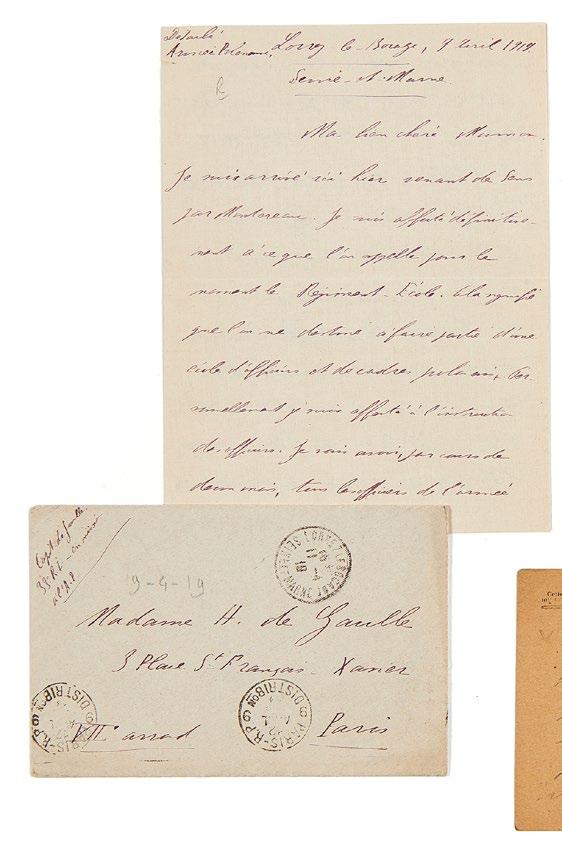 Détaché
Armée Polonaise, Lorrez-le-Bocage, 9 avril 1919.
Seine-et-Marne
Ma bien chère Maman.
Je suis arrivé ici hier venant de Sens
par Montereau. Je suis affecté définitive-
ment à ce que l'on appelle pour le
moment le Régiment-École. Cela signifie
que l'on me destine à faire partie d'une
école d'officiers et de cadres polonais. Per-
sonnellement je suis affecté à l'instruction
des officiers. Je vais avoir, par cours de
deux mois, tous les officiers de l'armée
Capt de Gaulle
33e R.I.
9-4-19
LORREZ LE BOCAGE
SEINE ET MARNE
11 -4
19
Madame H. de Gaulle
3 Place St François-Xavier
VIIe arrond
Paris
PARIS-R.P 6
DISTRIBON
PARIS-R.P 6
DISTRIBON